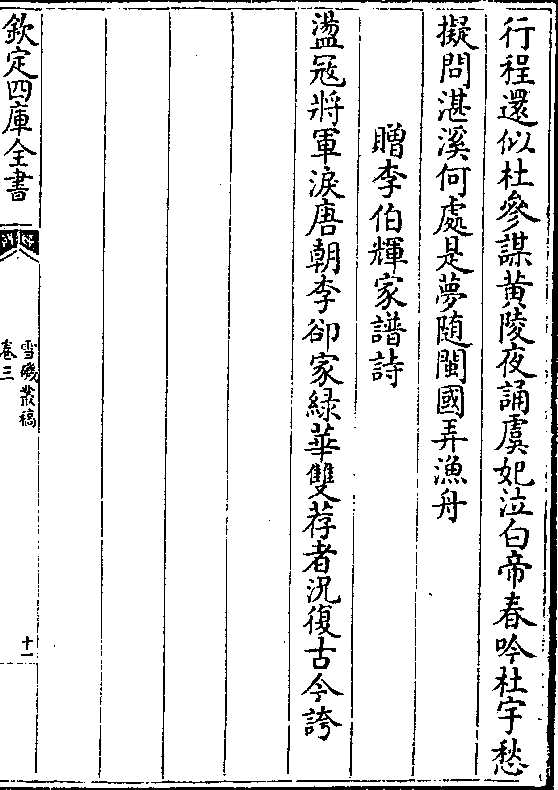 行程還似杜參謀黄陵夜誦虞妃泣白帝春吟杜宇愁
擬問湛溪何處是夢随閩國弄漁舟
贈李伯輝家譜詩
盪寇將軍淚唐朝李卻家緑華雙荐者況復古今誇
欽定四庫全書
雪磯叢稿
卷三
十一